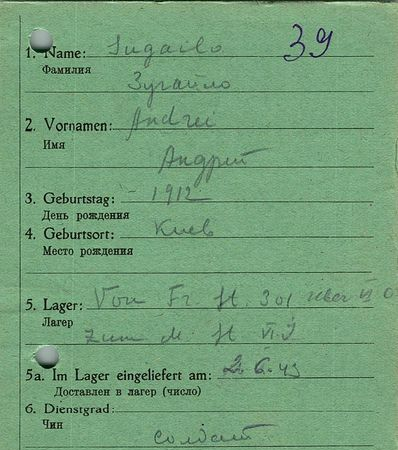 39
1. Name: Sugailo
Фамилия
Зугайло
2. Vornamen: Andrei
Имя
Андрий
3. Geburtstag: 1912
День рождения
4. Geburtsort: Киев
Место рождения
5. Lager: Vom Fr. St. 301
Лагер zum M. St. VI
5a. Im Lager eingeliefert am: 2.6.43
Доставлен в лагер (число)
6. Dienstgrad:
Чин
солдат